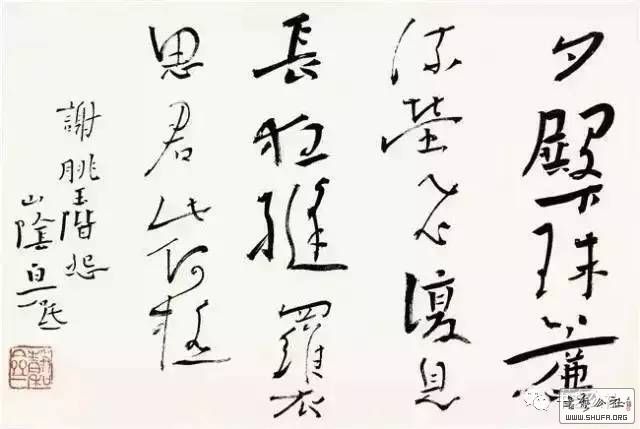 夕殿下珠簾
流螢飛復息
長夜縫羅衣
思君此何極
謝朓玉階怨
山陰白
书艺公社
WWW.SHUFA.ORG